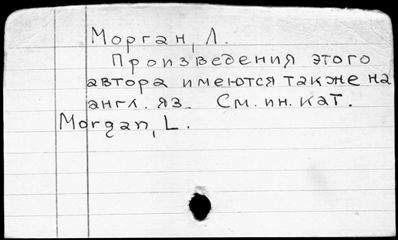 Морган, Л.
Произведения этого
автора имеются также на
англ. яз. См. ин. кат.
Morgan, L.